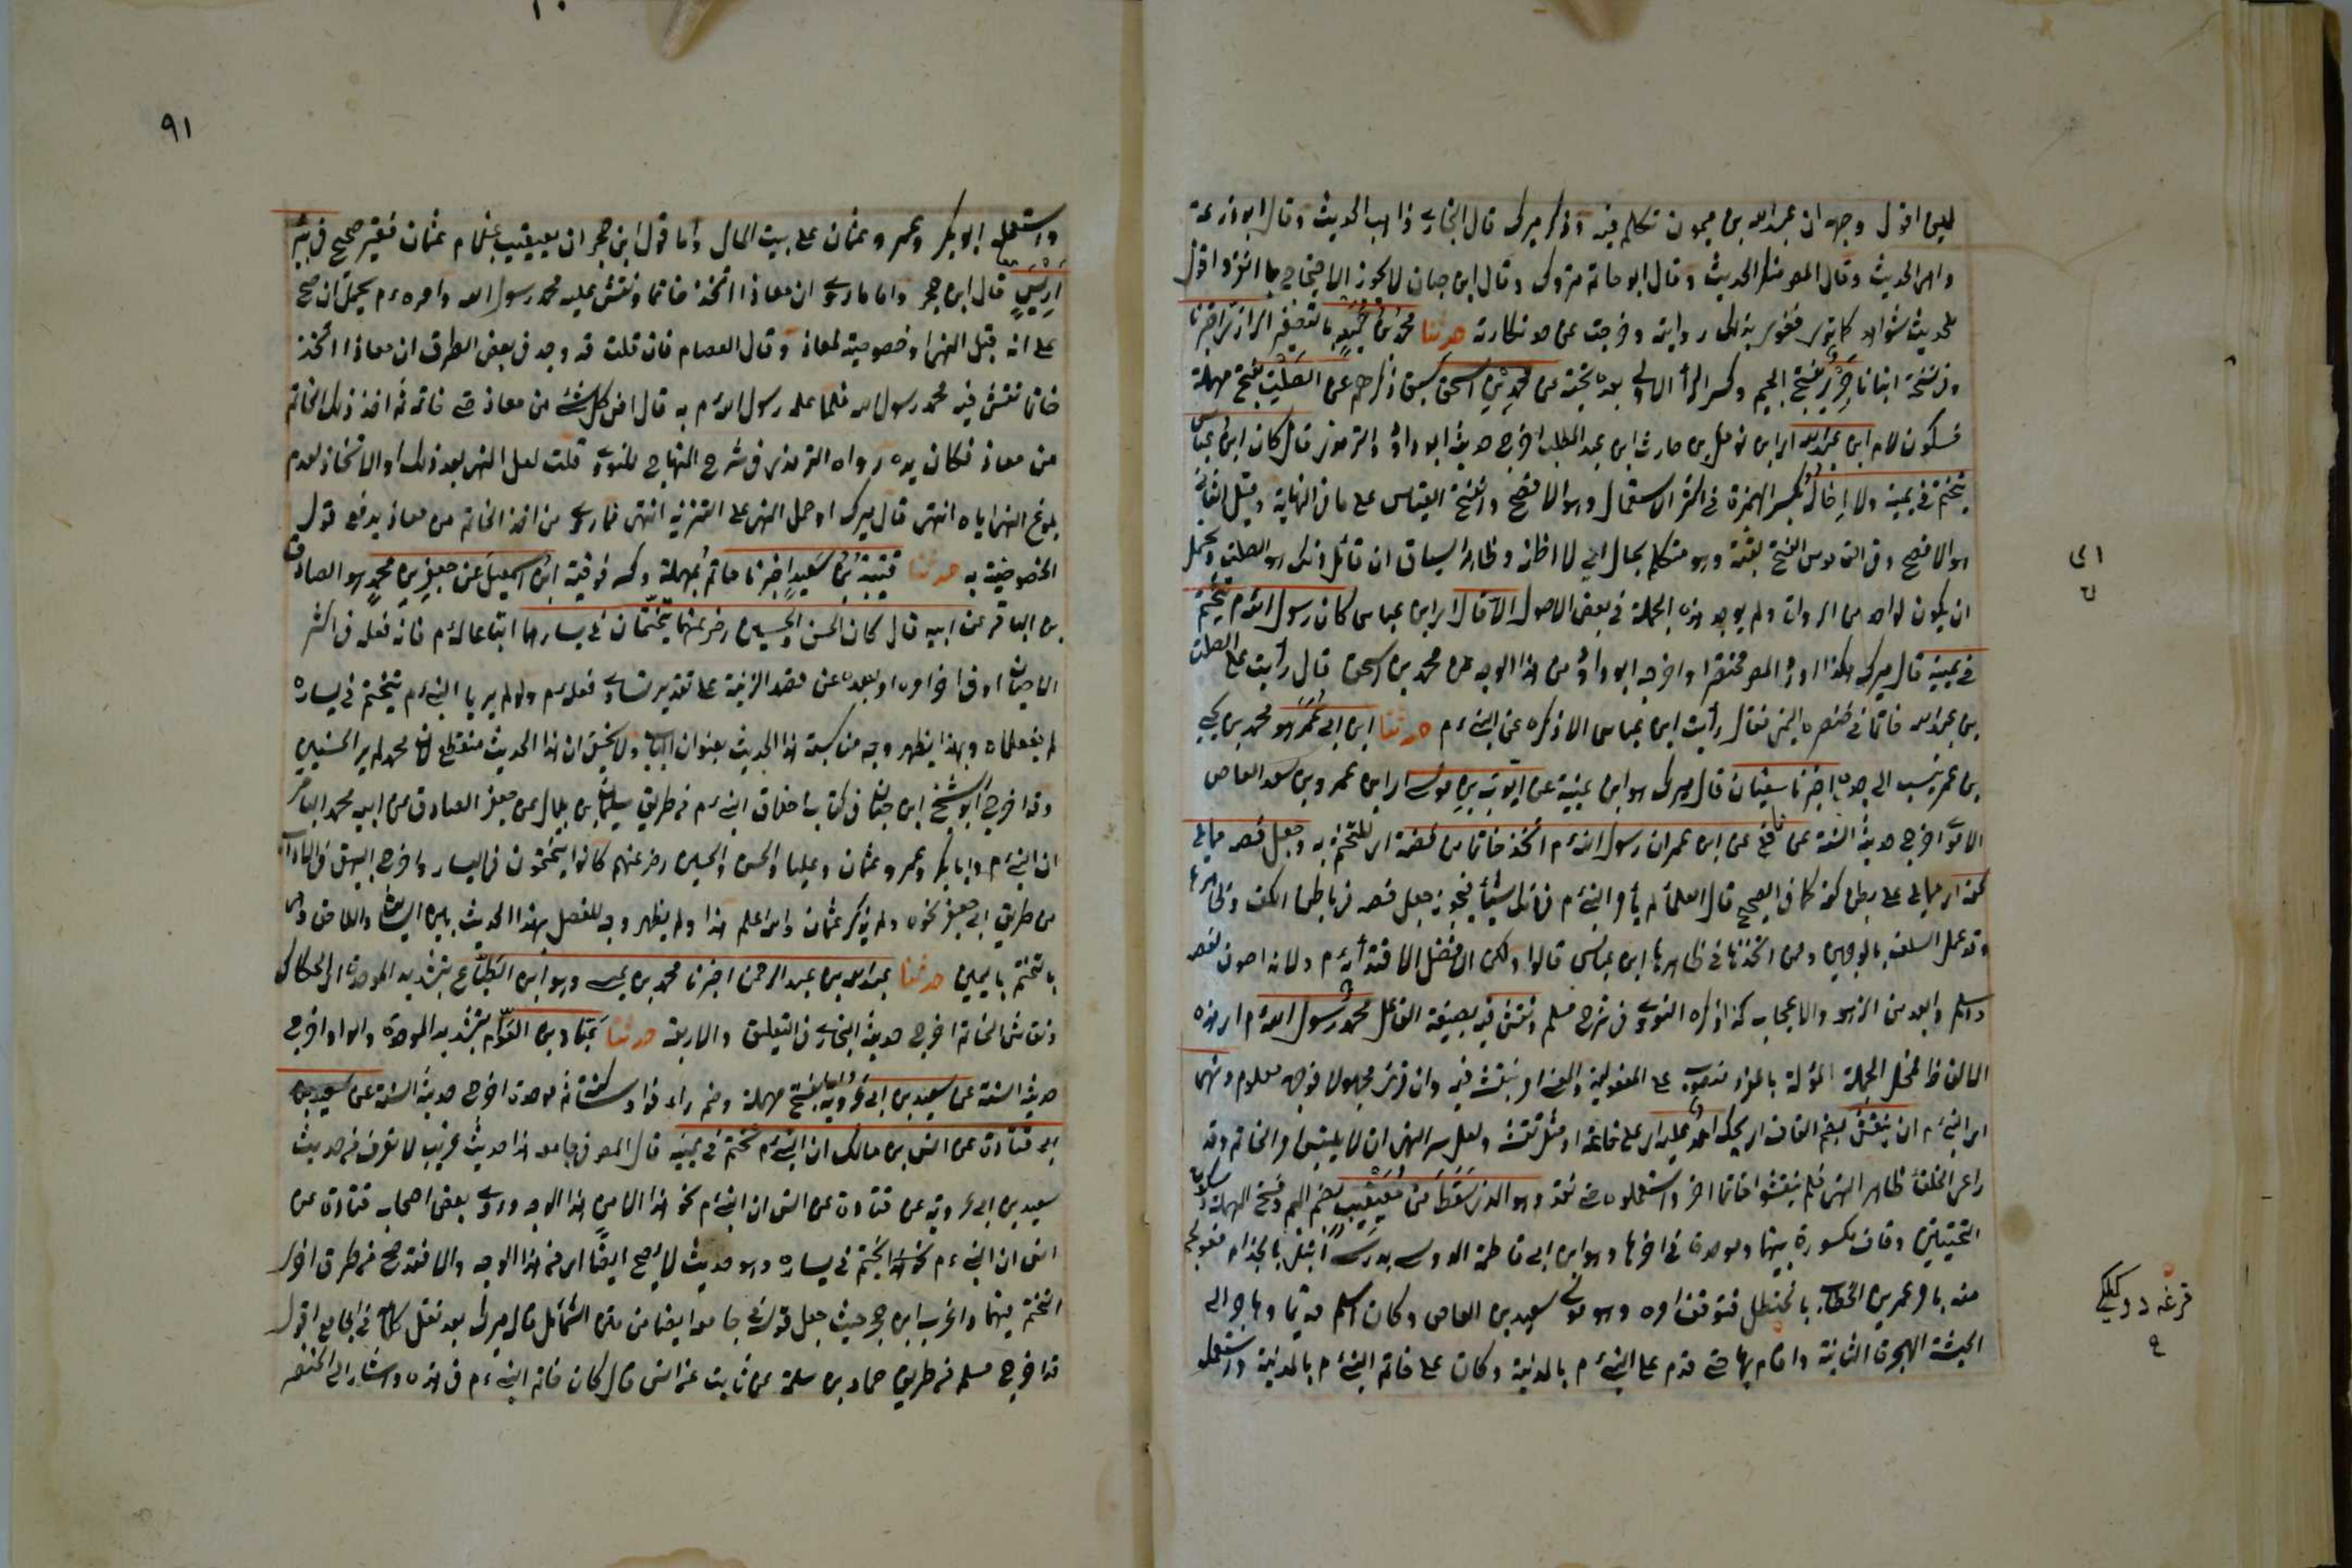 وجهه ان عبد الله بن ميمون تكلم فيه وذكر ميرك قال البخاري ذاهب الحديث وقال ابو زرعة
واهى الحديث وقال المص منكر الحديث وقال ابو حاتم متروك وقال ابن حبان لا يجوز الاحتجاج بما انفرد اقول
حدثنا محمد بن حميد بالتصغير الرازي اخبرنا
وفي نسخة انبانا جرير بفتح الجيم وكسر الرأ الاولى بعده تحتية عن محمد بن اسحق سبق ذكرهم عن الصلت بفتح مهملة
فسكون لام ابن عبد الله اي ابن نوفل بن حارث ابن عبد المطلب اخرج حديثه ابو داود والترمذي قال كان ابن عباس
يتختم في يمينه ولا إخاله بكسر الهمزة في اكثر الاستعمال وهو الافصح والفتح القياس على ما في النهاية وقيل الثاني
هو الافصح وفي القاموس الفتح لغية وهو متكلم يخال اي لا اظنه وظاهر السياق ان قائل ذلك هو الصلت ويحتمل
ان يكون لواحد من الرواة ولم يوجد هذه الجملة في بعض الاصول الا قال اي ابن عباس كان رسول الله م يتختم
في يمينه قال ميرك هكذا اورد المص مختصرا واخرجه ابو داود من هذا الوجه عن محمد بن اسحق قال رأيت على الصلت
بن عبد الله خاتما في خنصره اليمنى فقال رأيت ابن عباس الا ذكره عن النبي ءم حدثنا ابن ابي عمر هو محمد بن يحيى
بن عمر ينسب الى جده اخبرنا سفيان قال ميرك هو ابن عيينة عن ايوب بن موسى اي ابن عمرو بن سعد العاص
الاموي اخرج حديثه الستة عن نافع عن ابن عمر ان رسول الله م اتخذ خاتما من فضة اي للتختم به وجعل فصه مما يلي
كفه اي مما يلي على بطن كفه كما في الصحيح قال العلماء لم يأمر النبي م في ذلك شيئا فيجوز جعل فصه في باطن الكف وظاهرها
وقد عمل السلف بالوجهين وممن اتخذها في ظاهرها ابن عباس قالوا ولكن الافضل الاقتداء به ءم ولانه اصون لفصه
واسلم وابعد من الزهو والاعجاب كذا ذكره النووي في شرح مسلم ونقش فيه بصيغة الفاعل محمد رسول الله م اي هذه
الالفاظ فمحل الجملة المؤلة بالمفرد منصوب على المفعولية والمعنى امر بنقشه فيه وان قرئ مجهولا فوجهه معلوم ونهى
اي النبي م ان ينقش بضم القاف اي يحك احد عليه اي على خاتمه او مثل نقشه ولعل سر النهى ان لا يلتبس امر الخاتم وقد
راعى الخلفاء ظاهر النهى فلم ينقشوا خاتما اخر واستعملوه حتى فقد وهو الذي سقط من معيقيب بضم الميم وفتح المهملة وسكون
التحتيتين وقاف مكسورة بينهما وموحدة في اخرها وهو ابن ابي فاطمة الدوسي بدري ابتلى بالجذام فعولج
منه بامر عمر بن الخطاب بالحنظل فتوقف امره وهو مولى سعيد بن العاص وكان اسلم قديما وهاجر الى
الحبشة الهجرة الثانية واقام بها حتى قدم على النبي م بالمدينة وكان على خاتم النبي م بالمدينة واستعمله
٩١
واستعمله ابو بكر وعمر وعثمان على بيت المال واما قول ابن حجر ان معيقيب غلام عثمان فغير صحيح في بئر
اريس قال ابن حجر واما ما روي ان معاذا اتخذ خاتما ونقش عليه محمد رسول الله واقره ءم يحتمل ان صح
على انه قبل النهى او خصوصية لمعاذ وقال العصام فان قلت قد وجد في بعض الطرق ان معاذا اتخذ
خاتما نقش فيه محمد رسول الله فلما علم رسول الله م به قال امن كل شئ من معاذ حتى خاتمه ثم اخذ ذلك الخاتم
من معاذ فكان بيده رواه الترمذي في شرح المنهاج للنووي قلت لعل النهى بعد ذلك او الاتخاذ لعدم
بلوغ النهى اياه انتهى قال ميرك او حمل النهى على التنزيه انتهى فما روي من اخذ الخاتم من معاذ يدفع قول
الخصوصية به حدثنا قتيبة بن سعيد اخبرنا حاتم بمهملة وكسر فوقية ابن اسمعيل عن جعفر بن محمد هو الصادق
بن الباقر عن ابيه قال كان الحسن والحسين رض عنهما يتختمان في يسارهما اتباعا له ءم فانه فعله في اكثر
الاحيان او في اخر امره او لبعده عن قصد الزينة على تقدير تساوي فعله ءم ولو لم يريا النبي ءم يتختم في يساره
لم يفعلاه وبهذا يظهر وجه مناسبة هذا الحديث بعنوان الباب ولا يخفى ان هذا الحديث منقطع لان محمد لم ير الحسنين
وقد اخرج ابو الشيخ ابن حبان في كتاب اخلاق النبي ءم من طريق سليمان بن بلال عن جعفر الصادق عن ابيه محمد الباقر
ان النبي ءم وابا بكر وعمر وعثمان وعليا والحسن والحسين رض عنهم كانوا يتختمون في اليسار واخرج البيهقي في الاداب
من طريق ابي جعفر نحوه ولم يذكر عثمان والله اعلم هذا ولم يظهر وجه للفصل بهذا الحديث بين السابق واللاحق
بالتختم باليمين حدثنا عبد الله بن عبد الرحمن اخبرنا محمد بن عيسى وهو ابن الطباع بتشديد الموحدة اي الحكاك
ونقاش الخاتم اخرج حديثه البخاري في التعليق والاربعة حدثنا عباد بن العوام بتشديد الموحدة والواو اخرج
حديثه الستة عن سعيد بن ابي عروبة بفتح مهملة وضم راء فواو ساكنة ثم موحدة اخرج حديثه الستة عن
قتادة عن انس بن مالك ان النبي م تختم في يمينه قال المص في جامعه هذا حديث غريب لا نعرفه من حديث
سعيد بن ابي عروبة عن قتادة عن انس ان النبي م نحو هذا الا من هذا الوجه وروي بعض اصحاب قتادة عن
انس ان النبي ءم تختم في يساره وهو حديث لا يصح ايضا اي من هذا الوجه والا فقد صح من طرق اخرى
التختم فيهما واغرب ابن حجر حيث جعل قوله في جامعه ايضا من متن الشمائل قال ميرك بعد نقل كلامه في الجامع اقول
قد اخرج مسلم من طريق حماد بن سلمة عن ثابت عن انس قال كان خاتم النبي ءم في هذه واشار الى الخنصر